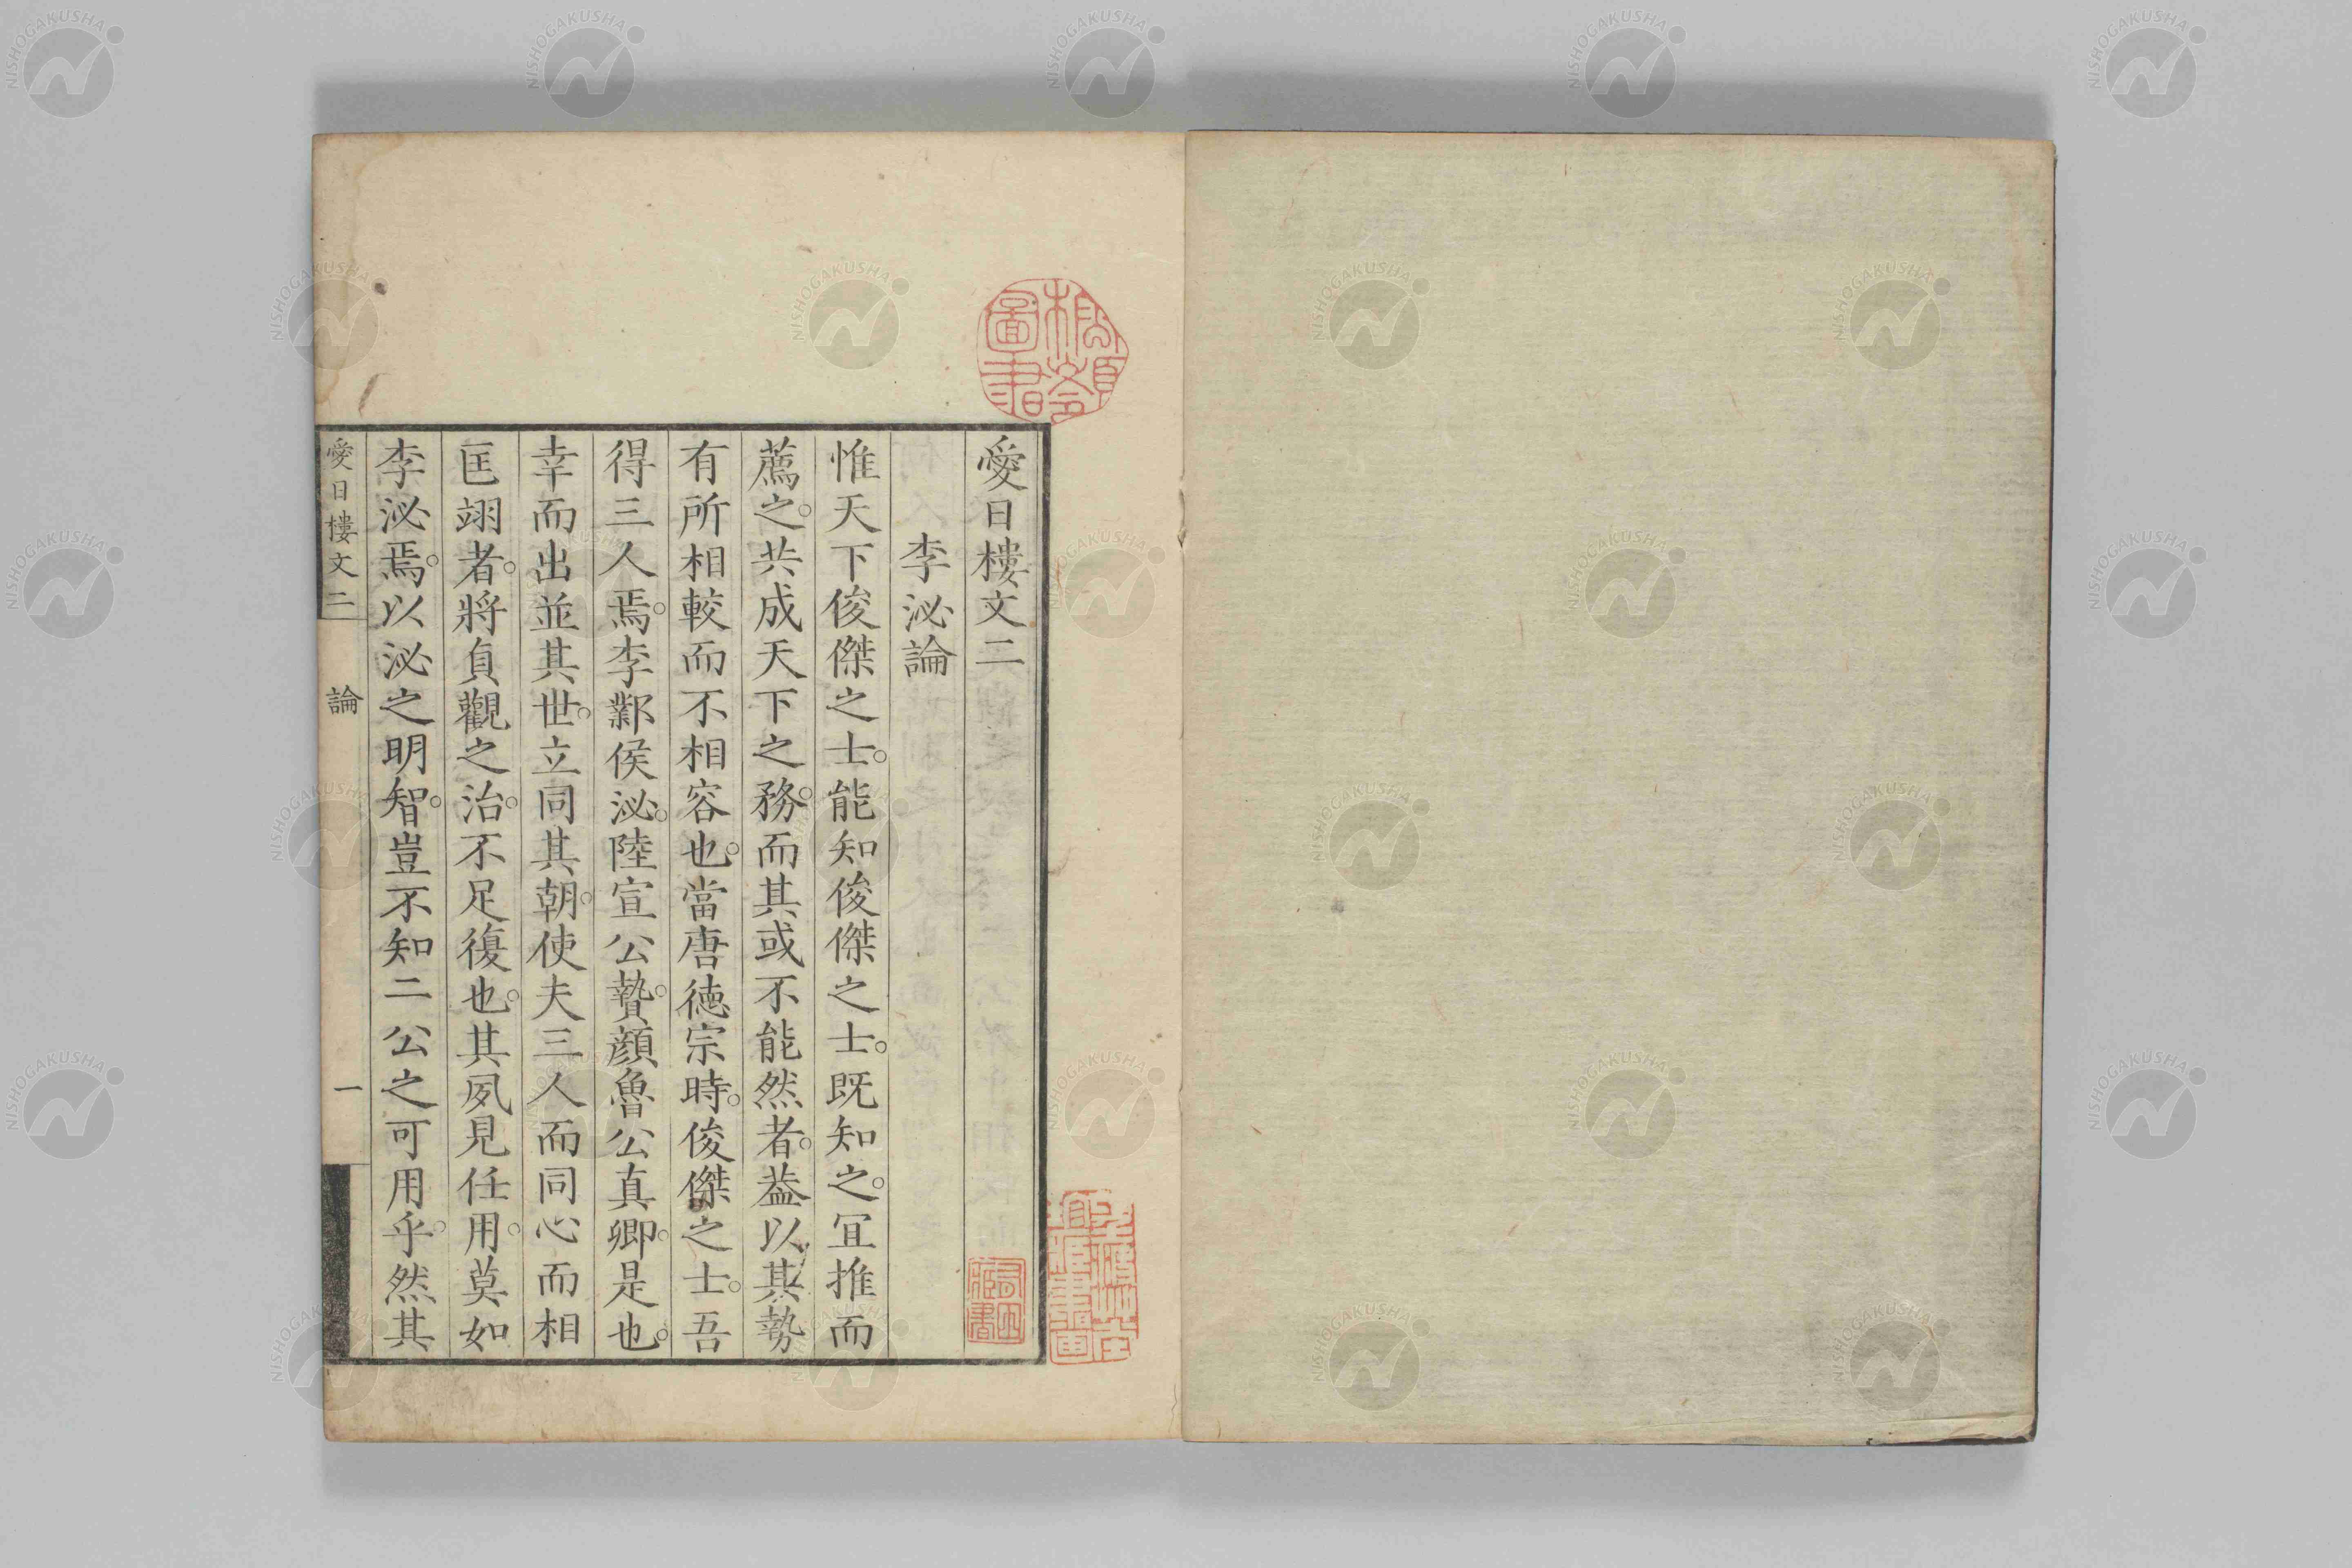 愛日樓文二
李泌論
惟天下俊傑之士。能知俊傑之士。既知之。宜推而
薦之。共成天下之務。而其或不能然者。葢以其勢
有所相較而不相容也。當唐德宗時。俊傑之士。吾
得三人焉。李鄴侯泌。陸宣公贄。顔魯公真卿。是也。
幸而出並其世。立同其朝。使夫三人而同心而相
匡翊者。將貞觀之治。不足復也。其夙見任用。莫如
李泌焉。以泌之明智。豈不知二公之可用乎。然其
愛日樓文二
論
一
圖書
NISHOGAKUSHA